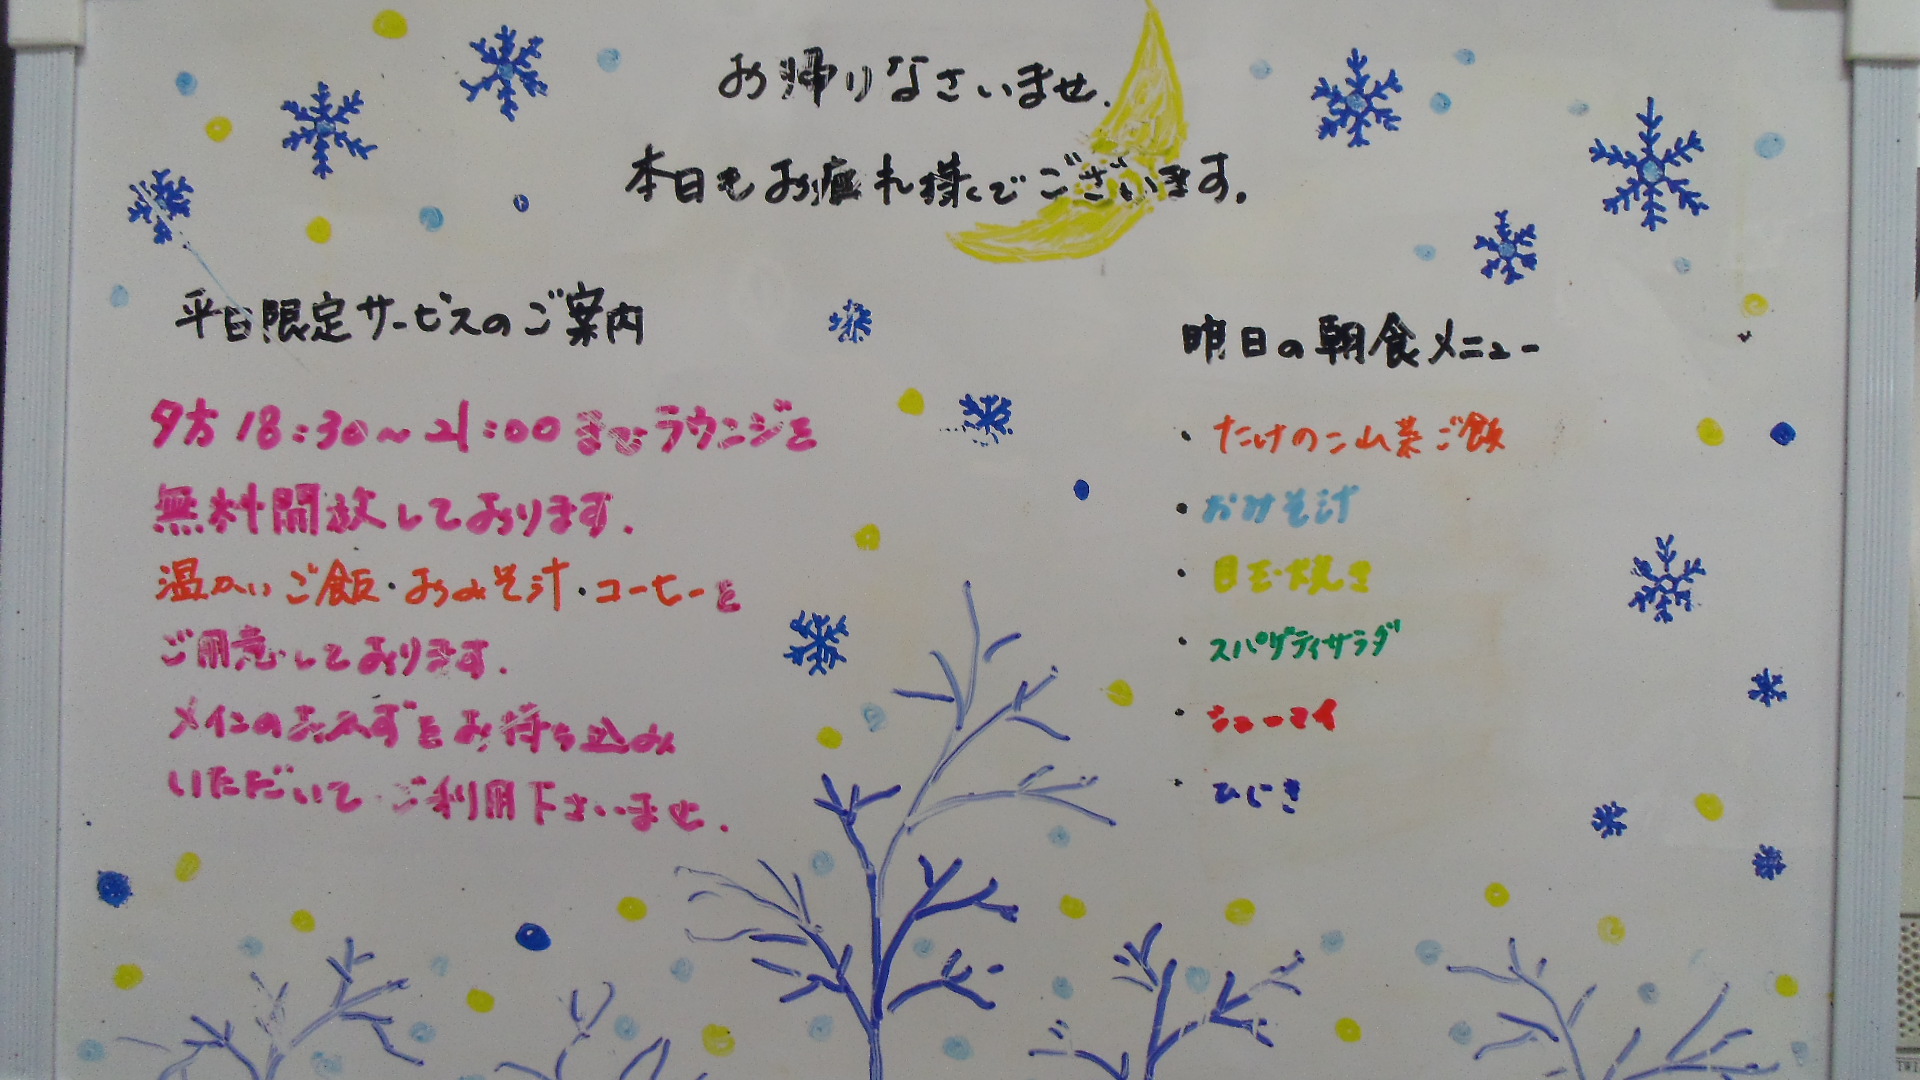 お帰りなさいませ.
本日もお疲れ様でございます。
平日限定サービスのご案内
夕方18:30～21:00までラウンジを
無料開放しております.
温かいご飯・おみそ汁・コーヒーを
ご用意しております.
メインのおかずをお持ち込み
いただいてご利用下さいませ.
明日の朝食メニュー
・たけのこ山菜ご飯
・おみそ汁
・目玉焼き
・スパゲティサラダ
・シューマイ
・ひじき